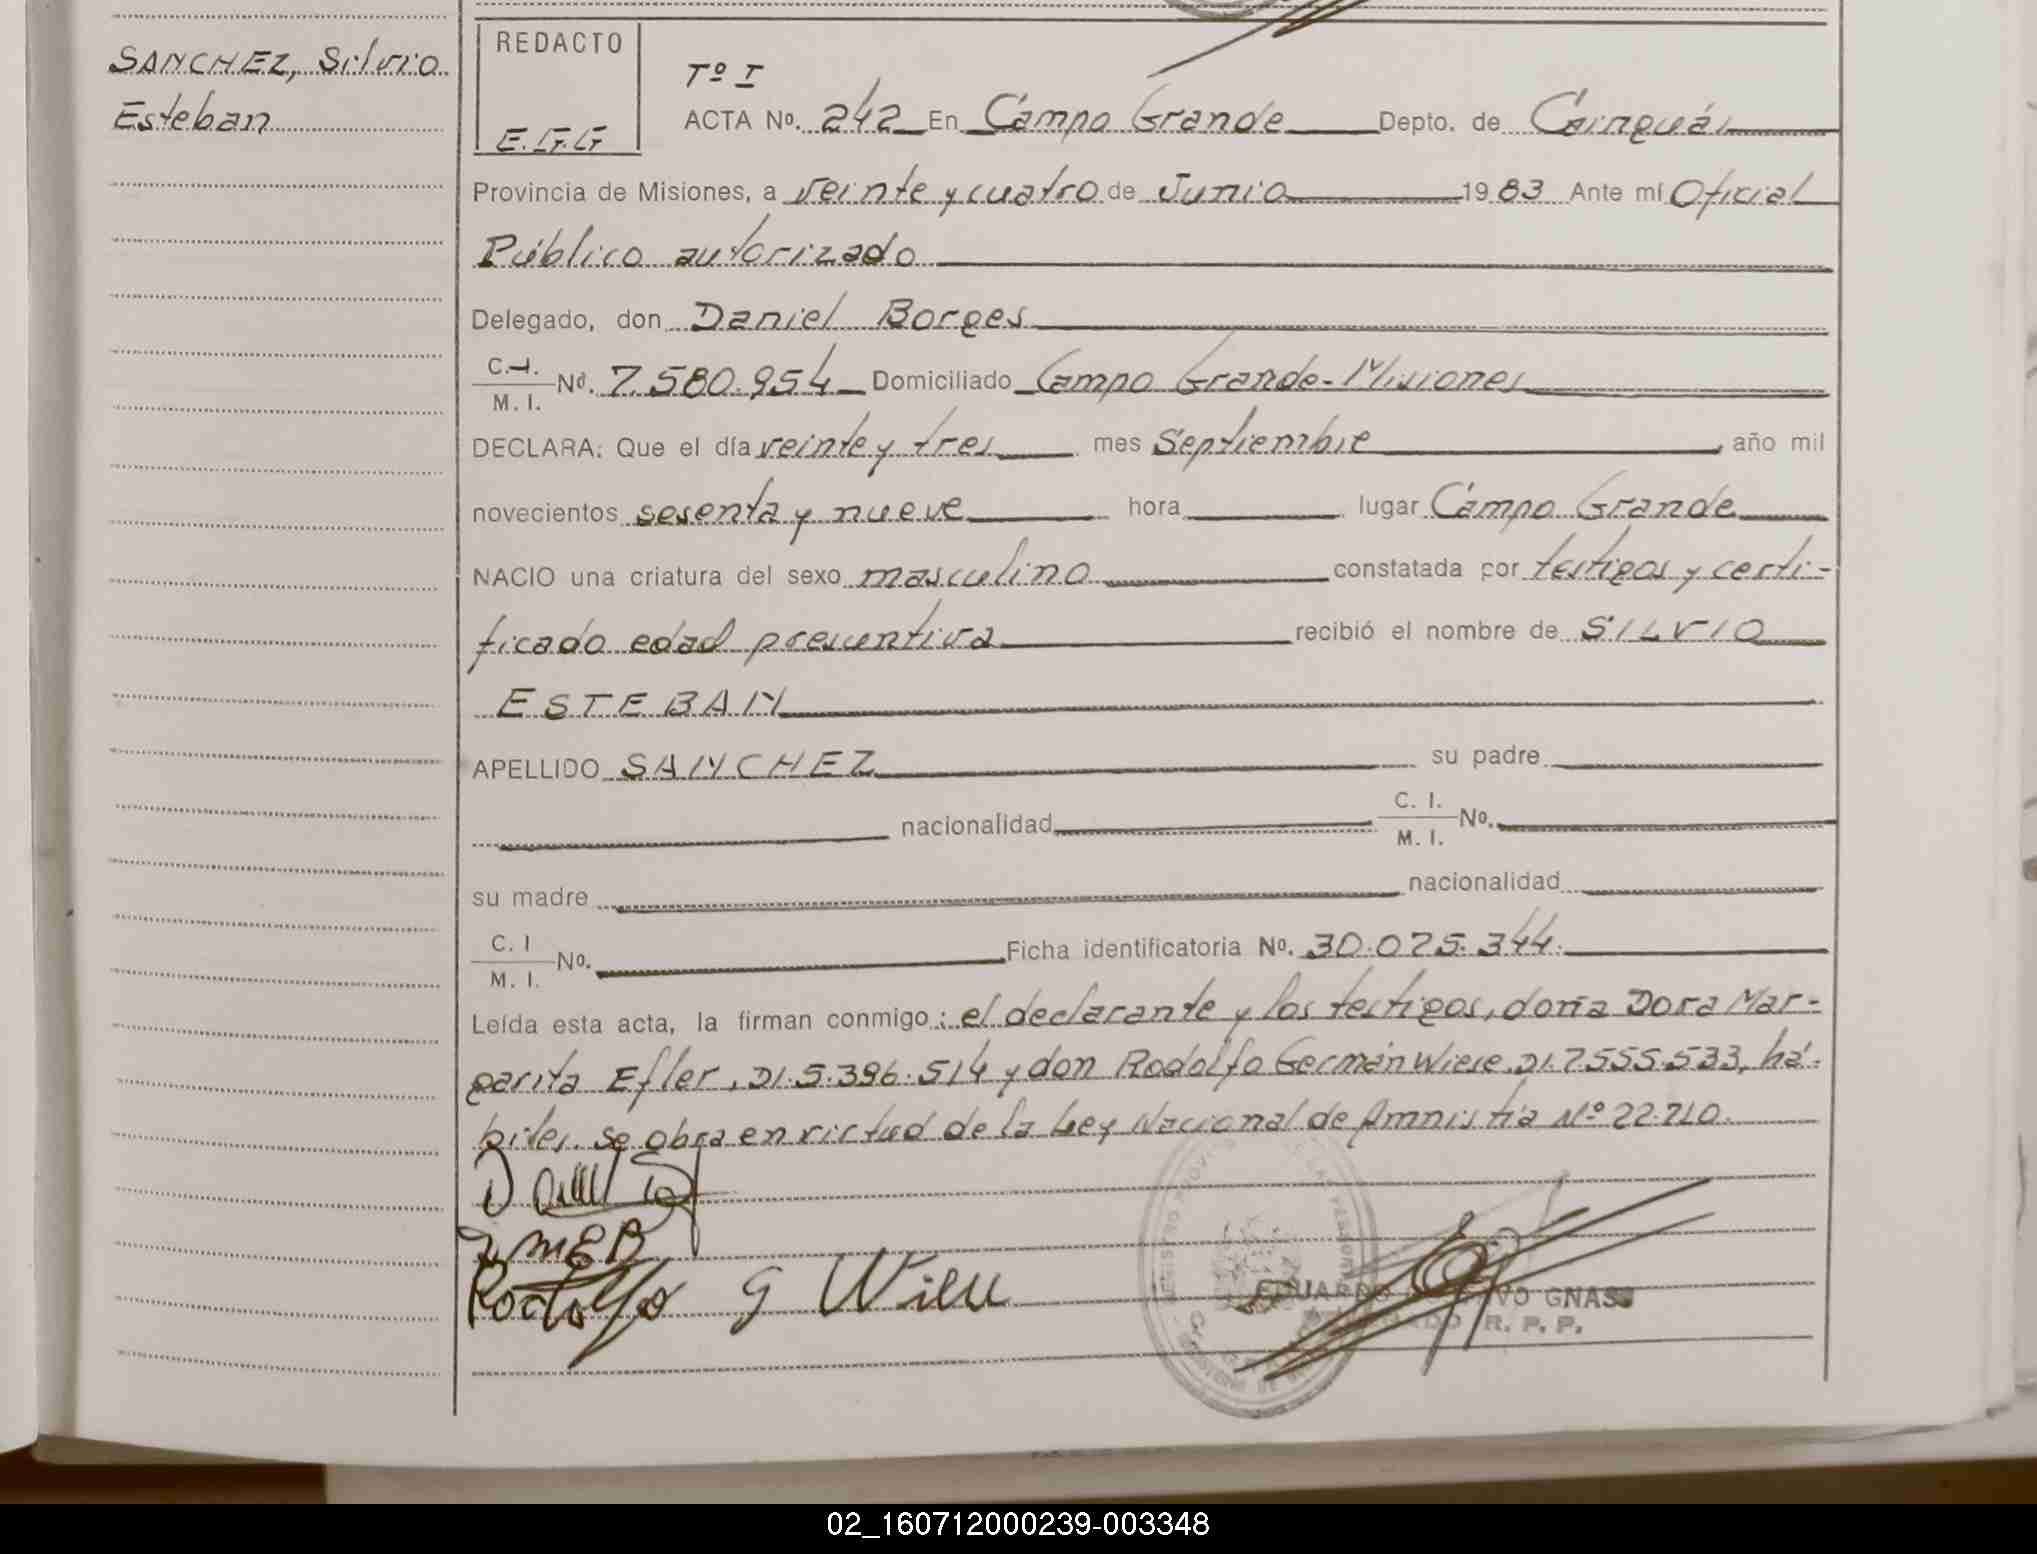 SANCHEZ, Silvio
Esteban
REDACTO
E.G.G
Tº I
ACTA Nº. 242 En Campo Grande Depto. de Cainguás
Provincia de Misiones, a veinte y cuatro de Junio 1983 Ante mí Oficial
Público autorizado
Delegado, don Daniel Borges
C.I. M. I. Nº. 7.580.954 Domiciliado Campo Grande-Misiones
DECLARA: Que el día veinte y tres mes Septiembre año mil
novecientos sesenta y nueve hora lugar Campo Grande
NACIO una criatura del sexo masculino constatada por testigos y certi-
ficado edad presuntiva recibió el nombre de SILVIO
ESTEBAN
APELLIDO SANCHEZ su padre
nacionalidad C. I. M. I. Nº.
su madre nacionalidad
C. I M. I. Nº. Ficha identificatoria Nº. 30.075.344.
Leída esta acta, la firman conmigo: el declarante y los testigos, doña Dora Mar-
garita Efler, DI.5.396.514 y don Rodolfo Germán Wiese, DI.7.555.533, há-
biles. se obra en virtud de la Ley Nacional de Amnistía Nº 22.710.
DMEB
Rodolfo G Wiese
EDUARDO GNASS
R. P. P.
02_160712000239-003348